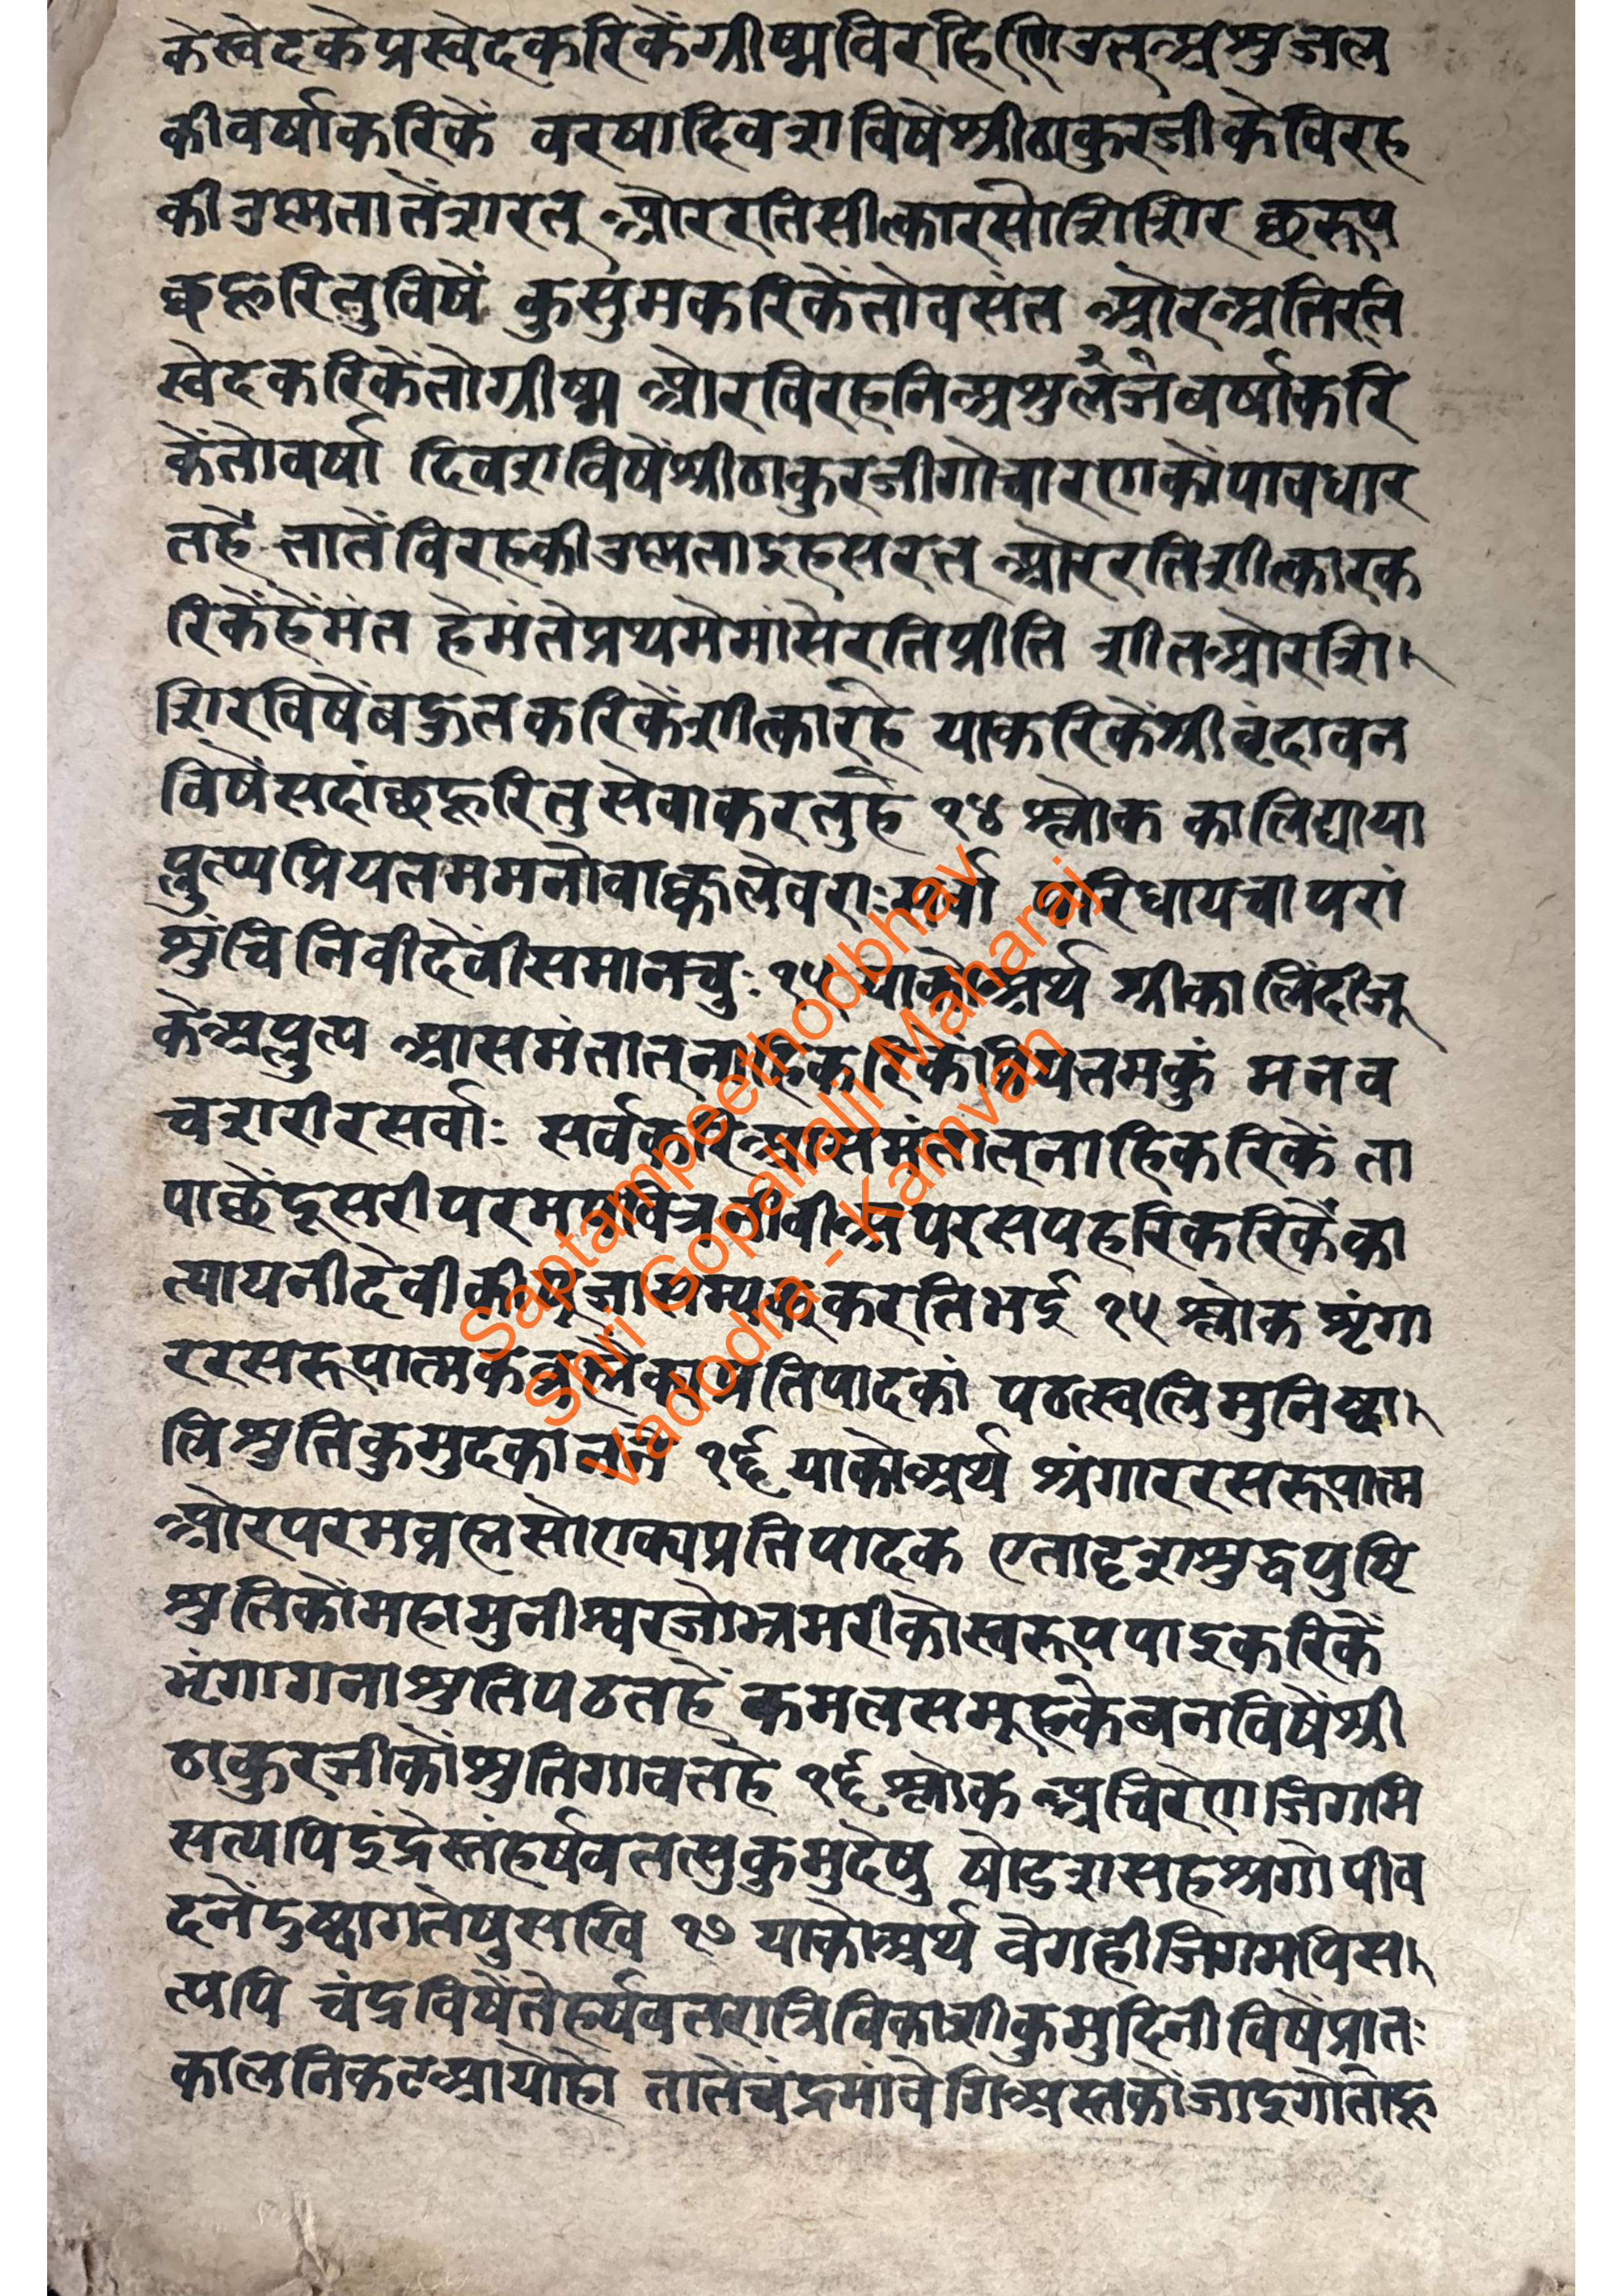 केस्वेदकेप्रस्वेदकरिकेंग्रीष्मविरहिणिउतअश्रुजल
कीवर्षाकरिकें वरषादिवशविषेंश्रीठाकुरजीकेविरह
कीउष्मतातेंशरत् औररतिसीत्कारसोशिशिर छरूप
छहरितुविषें कुसुमकरिकेंतोवसंत औरअतिरति
स्वेदकरिकेंतोग्रीष्म औरविरहनिअश्रुलजेबर्षाकरि
केंतोवर्षा दिवशविषेंश्रीठाकुरजीगोचारणकोंपावधार
तहै तातेंविरहकीउष्मताइहसरत् औररतिशीत्कारक
रिकेंहेंमंत हेमंतेप्रथमेमांसेरतिप्रीति शीतऔरशि
शिरविषेंबहुतकरिकेंशीत्कारहै याकरिकेंश्रीवृंदावन
विषेंसदांछहरितुसेवाकरतुहै १४ श्लोक कालिद्यामा
प्लुत्यप्रियतममनोवाक्कलेवराःसर्वा परिधायचापरां
श्रुंचिनिवीदेवीसमानचुः १५ याकोअर्थ श्रीकालिंदीजू
केअप्लुत्य आसमंतात्नाहिकरिकें प्रियतमकुं मनव
चशरीरसर्वाः सर्वकरिआसमंतात्नाहिकरिकें ता
पाछेंदूसरीपरमपवित्रनीवीअपरसपहरिकरिकेंका
त्यायनीदेवीकीपूजासम्यक्करतिभई १५ श्लोक शृंगा
ररसरूपात्मकब्रह्मैक्यप्रतिपादकां पठत्स्वलिमुनिष्वा
लिश्रुतिकुमुदकानने १६ याकोअर्थ श्रंगाररसरूपात्म
औरपरमब्रह्मसोंएक्यप्रतिपादक एतादृशशुद्धपुष्टि
श्रुतिकोंमहामुनीश्वरजोभ्रमरीकोस्वरूपपाइकरिकें
भृंगागनाश्रुतिपठतहें कमलसमूहकेबनविषेंश्री
ठाकुरजीकोंश्रुतिगावतहै १६ श्लोक अचिरेणजिगमि
सत्यपिइंद्रेस्तंहर्षवतत्सुकुमुदेषु षोडशसहश्रगोपीव
दनेंदुष्वागतेषुसखि १७ याकोअर्थ वेगहीजिगमपिस
त्यपि चंद्रविषेंतेहर्यवतरात्रिविकाशीकुमुदिनीविषेंप्रातः
कालनिकटआयोहो तातेंचंद्रमांवेगिअस्तकोंजाइगोतोहू
Saptampeethodbhav
Shri Gopallalji Maharaj
Vadodra - Kamvan